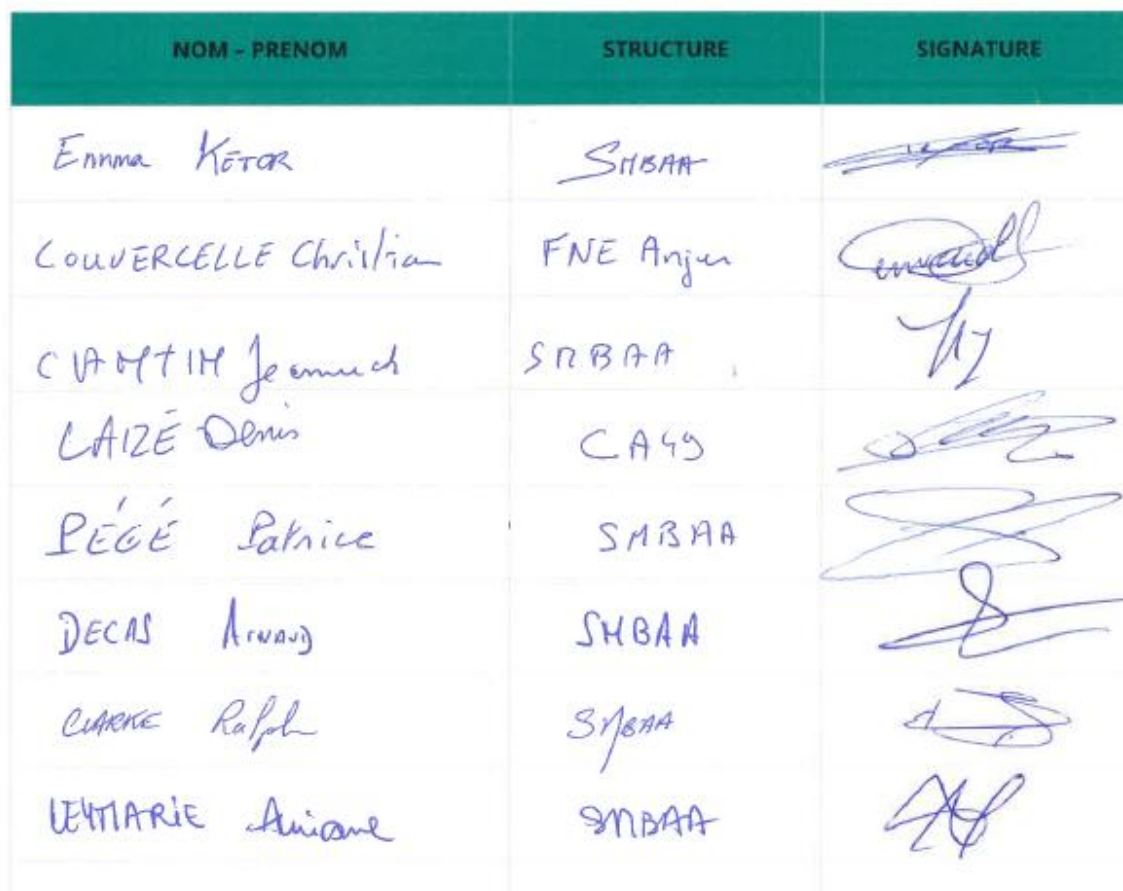 NOM - PRENOM STRUCTURE SIGNATURE
Emma KETOR SMBAA
COUVERCELLE Christian FNE Anjou
SMBAA
LAIZÉ Denis CA49
PÉGÉ Patrice SMBAA
DECAS Arnaud SMBAA
CLARKE Ralph SMBAA
LEYMARIE SMBAA